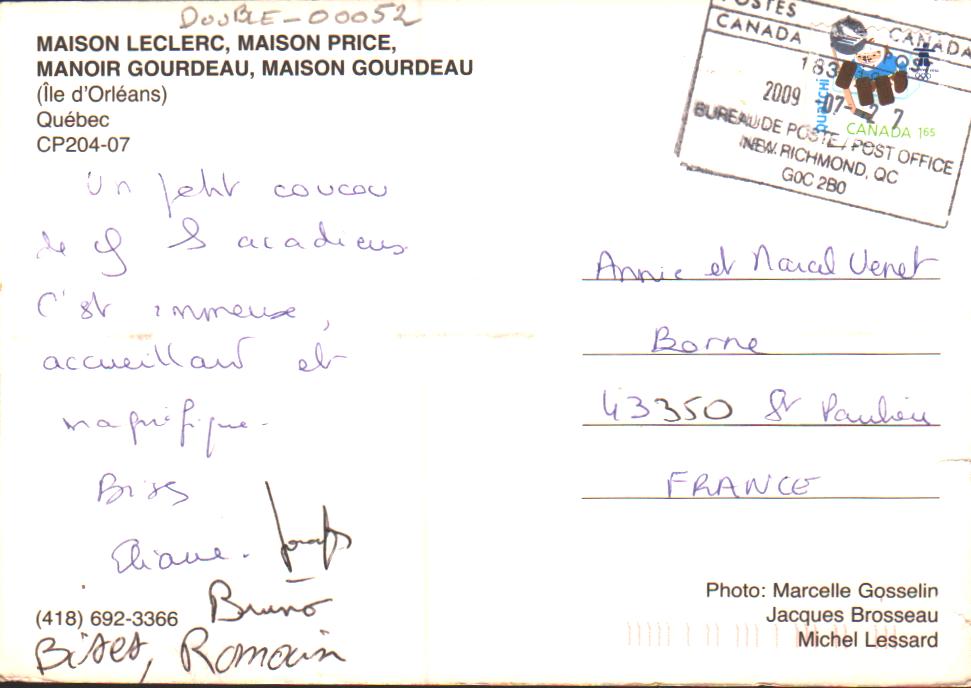 DOUBLE-00052
MAISON LECLERC, MAISON PRICE,
MANOIR GOURDEAU, MAISON GOURDEAU
(Île d'Orléans)
Québec
CP204-07
Un petit coucou
de acadiens
C'est immense,
accueillant et
magnifique.
Bises
Eliane.
Bruno
(418) 692-3366
Bises, Romain
POSTES CANADA
CANADA POST
183
2009 -07- 27
BUREAU DE POSTE / POST OFFICE
NEW RICHMOND, QC
G0C 2B0
quatchi
CANADA 165
Annie et Marcel Venet
Borne
43350 St Paulien
FRANCE
Photo: Marcelle Gosselin
Jacques Brosseau
Michel Lessard